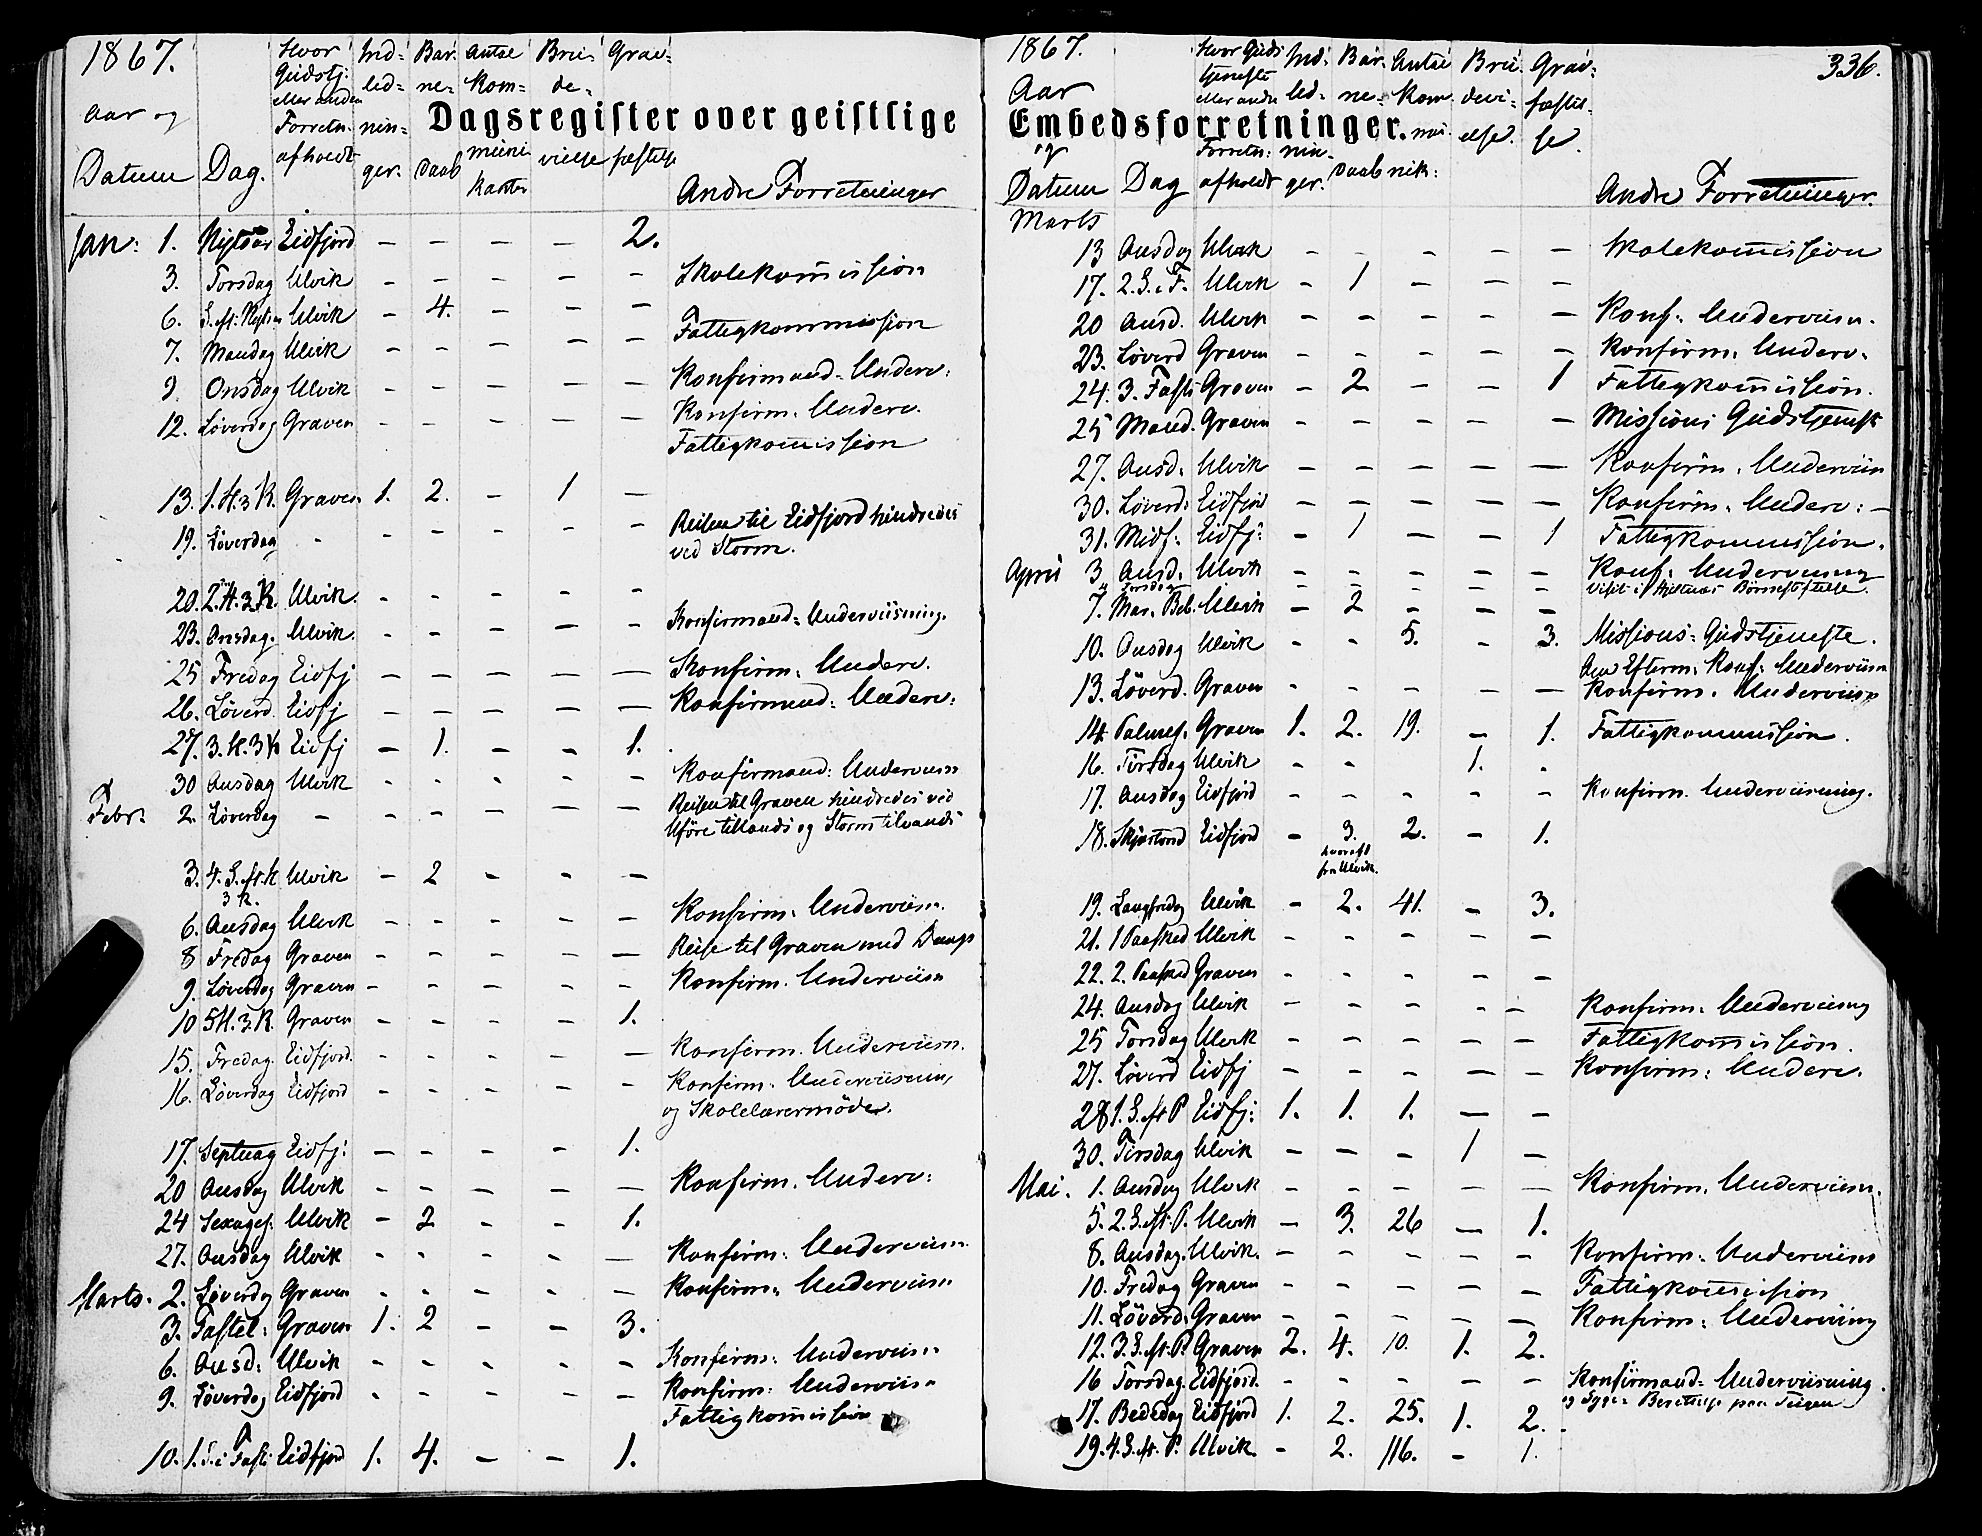 1867.
Aar og
Datum
Dag.
Hvor
Gudstj:
eller anden
Forretn.
afholdt
Ind-
led-
nin-
ger.
Bar-
ne-
Daab
Antal
Kom-
muni-
kanter
Bru-
de-
vielse
Grav-
fæstelse
Andre Forretninger
Dagsregister over geistlige
Jan: 1. Nytaar Eidfjord - - - - 2.
3. Torsdag Ulvik - - - - - Skolekommission
6. S. eft: Nytaar Ulvik - 4. - - -
7. Mandag Ulvik - - - - - Fattigkommission
9. Onsdag Ulvik - - - - - Konfirmand-Underv:
12. Løverdag Graven - - - - - Konfirm. Underv.
Fattigkommission
13. 1. S. e. H. 3 K. Graven 1. 2. - 1 -
19. Løverdag - - - - - - Reisen til Eidfjord hindredes
ved Storm.
20. 2. H. 3 K. Ulvik. - - - - -
23. Onsdag. Ulvik. - - - - - Konfirmand-Underviisning.
25 Fredag Eidfj - - - - - Konfirm. Underv.
26. Løverd. Eidfj - - - - - Konfirmand: Underv:
27. 3. H. 3 K Eidfj - 1. - - 1.
30 Onsdag Ulvik - - - - - Konfirmand: Underviisn
Febr. 2. Løverdag - - - - - - Reisen til Graven hindredes ved
Uføre tillands og Storm tilvands
3. 4. S. eft. H Ulvik - 2 - - -
3 K.
6. Onsdag Ulvik - - - - - Konfirm: Underviisn.
8 Fredag Graven - - - - - Reise til Graven med Damps
9. Løverdag Graven - - - - - Konfirm. Underviisn
10 5 H. 3. K. Graven - - - - 1.
15. Fredag. Eidfjord. - - - - - Konfirm. Underviisn.
16. Løverdag Eidfjord - - - - - Konfirm. Underviisning
og Skolelærermøde.
17. Septuag Eidfj: - - - - 1.
20 Onsdag Ulvik - - - - - Konfirm. Underv:
24 Sexages. Ulvik - 2 - - 1.
27. Onsdag Ulvik - - - - - Konfirm: Underviisn.
Marts. 2. Løverdag Graven - - - - - Konfirm: Underviisn
3. Fastel: Graven 1. 2 - - 3.
6. Onsd: Ulvik - - - - - Konfirm: Underviisn
9. Løverdag Eidfjord - - - - - Konfirm: Underviisn
Fattigkommission
10. 1. S. i Fast: Eidfjord 1. 4. - - 1.
1867.
336.
Aar
og
Datum
Dag
Hvor Guds
tjeneste
eller andre
Forretn:
afholdt
Ind-
led-
nin-
ger.
Bar-
ne-
Daab
Antal
Kom
mu-
nik:
Bru-
devi-
else.
Grav-
fæstel-
se.
Andre Forretninger.
Embedsforretninger.
Marts
13 Onsdag Ulvik - - - - - Skolekommission
17. 2. S. i F. Ulvik - 1 - - -
20 Onsd. Ulvik - - - - - Konf. Underviisn.
23. Løverd Graven - - - - - Konfirm. Underv.
24. 3. Faste Graven - 2 - - 1 Fattigkommission.
25 Mand. Graven - - - - - Missions Gudstjeneste
27. Onsd. Ulvik - - - - - Konfirm. Underviisn
30. Løverd: Eidfjord - - - - - Konfirm. Underv: -
31. Midf: Eidfj: - 1 - - 1 Fattigkommission.
April 3 Onsd. Ulvik - - - - - Konf. Underviisning
4 Torsdag - - - - - Visit i Børneskole
7. Mar. Beb. Ulvik - 2 - - -
10. Onsdag Ulvik - - 5. - 3. Missions-Gudstjeneste.
Om Efterm. Konf. Underviisn
13. Løverd. Graven - - - - - Konfirm. Underviisn
14. Palmes. Graven 1. 2. 19. - 1. Fattigkommission.
16. Tirsdag Ulvik - - 1. -
17. Onsdag Eidfjord - - - - - Konfirm. Underviisning.
18. Skjærtorsd Eidfjord - 3. 2. - 1.
hvoraf 1
fra Ulvik.
19. Langfredag Ulvik - 2. 41. - 3.
21. 1 Paasked Ulvik - - - - -
22. 2. Paasked Graven - - - - -
24. Onsdag Ulvik - - - - - Konfirm: Underviisning
25 Torsdag Ulvik - - - - - Fattigkommission.
27. Løverd Eidfj - - - - - Konfirm: Underv.
28 1. S. eft P Eidfj: 1. 1. 1. - -
30. Tirsdag Ulvik - - - 1 -
Mai. 1. Onsdag Ulvik - - - - - Konfirm. Underviisn.
5. 2. S. eft. P. Ulvik - 3. 26 - 1.
8. Onsdag. Ulvik. - - - - - Konfirm: Underviisn
10. Fredag Graven - - - - - Fattigkommission
11. Løverd. Graven - - - - - Konfirm: Underviisning
12. 3. S. eft. P. Graven 2. 4. 10. 1. 2.
16 Torsdag. Eidfjord. - - - - - Konfirmand-Underviisning.
og Syge Beretelse paa Veien
17. Bededag Eidfjord 1. 2. 25. 1. 2.
19. 4. S. eft. P. Ulvik. - 2. 116. - 1.